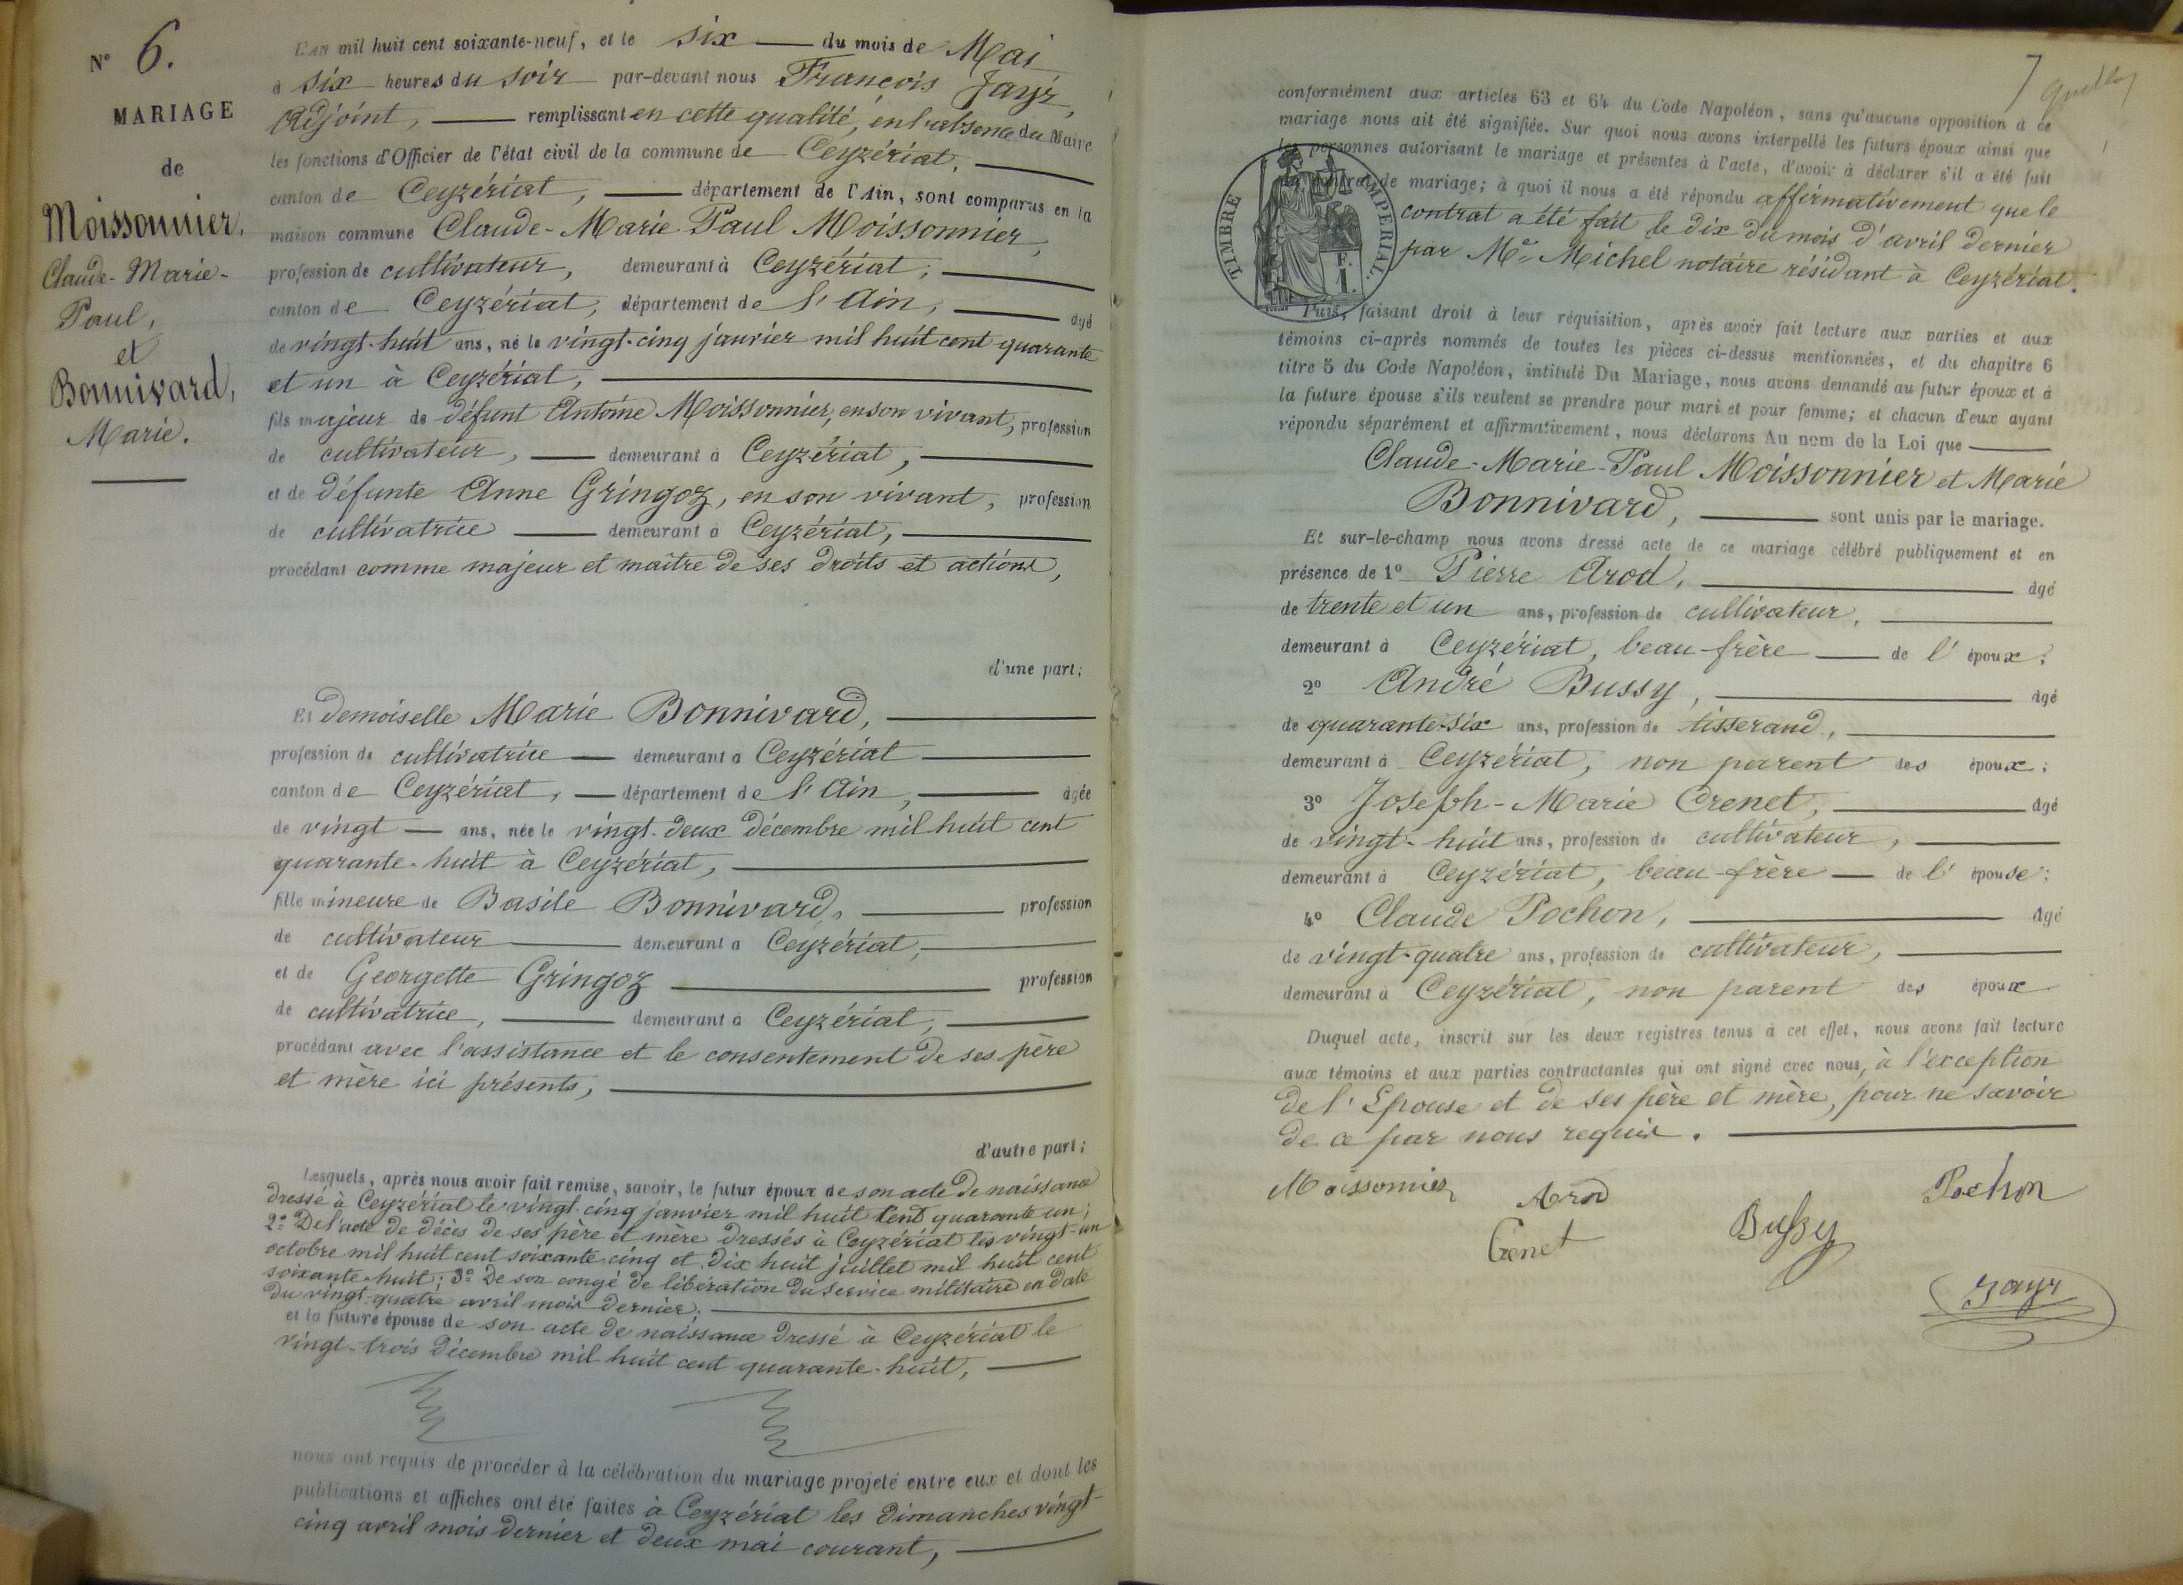 N° 6.
MARIAGE
de
Moissonnier,
Claude-Marie-
Paul,
et
Bonnivard,
Marie.
L'an mil huit cent soixante-neuf, et le six du mois de Mai
à six heures du soir par-devant nous François Jayr,
Adjoint, remplissant en cette qualité, en l'absence du Maire
les fonctions d'Officier de l'état civil de la commune de Ceyzériat,
canton de Ceyzériat, département de l'Ain, sont comparus en la
maison commune Claude-Marie-Paul Moissonnier,
profession de cultivateur, demeurant à Ceyzériat,
canton de Ceyzériat, département de l'Ain, âgé
de vingt-huit ans, né le vingt-cinq janvier mil huit cent quarante
et un à Ceyzériat,
fils majeur de défunt Antoine Moissonnier, en son vivant, profession
de cultivateur, demeurant à Ceyzériat,
et de défunte Anne Gringoz, en son vivant, profession
de cultivatrice demeurant à Ceyzériat,
procédant comme majeur et maître de ses droits et actions,
d'une part;
Et demoiselle Marie Bonnivard,
profession de cultivatrice demeurant à Ceyzériat
canton de Ceyzériat, département de l'Ain, âgée
de vingt ans, née le vingt-deux décembre mil huit cent
quarante-huit à Ceyzériat,
fille mineure de Basile Bonnivard, profession
de cultivateur demeurant à Ceyzériat,
et de Georgette Gringoz profession
de cultivatrice, demeurant à Ceyzériat,
procédant avec l'assistance et le consentement de ses père
et mère ici présents,
d'autre part;
Lesquels, après nous avoir fait remise, savoir, le futur époux de son acte de naissance
dressé à Ceyzériat le vingt-cinq janvier mil huit cent quarante un;
2° De l'acte de décès de ses père et mère dressés à Ceyzériat les vingt-un
octobre mil huit cent soixante-cinq et dix huit juillet mil huit cent
soixante-huit; 3° De son congé de libération du service militaire en date
du vingt-quatre avril mois dernier.
et la future épouse de son acte de naissance dressé à Ceyzériat le
vingt-trois Décembre mil huit cent quarante-huit,
nous ont requis de procéder à la célébration du mariage projeté entre eux et dont les
publications et affiches ont été faites à Ceyzériat les dimanches vingt-
cinq avril mois dernier et deux mai courant,
7
conformément aux articles 63 et 64 du Code Napoléon, sans qu'aucune opposition à ce
mariage nous ait été signifiée. Sur quoi nous avons interpellé les futurs époux ainsi que
les personnes autorisant le mariage et présentes à l'acte, d'avoir à déclarer s'il a été fait
de mariage; à quoi il nous a été répondu affirmativement que le
contrat a été fait le dix du mois d'avril dernier
par Me Michel notaire résidant à Ceyzériat.
TIMBRE IMPERIAL.
F.
1.
Puis, faisant droit à leur réquisition, après avoir fait lecture aux parties et aux
témoins ci-après nommés de toutes les pièces ci-dessus mentionnées, et du chapitre 6
titre 5 du Code Napoléon, intitulé Du Mariage, nous avons demandé au futur époux et à
la future épouse s'ils veulent se prendre pour mari et pour femme; et chacun d'eux ayant
répondu séparément et affirmativement, nous déclarons Au nom de la Loi que
Claude-Marie-Paul Moissonnier et Marie
Bonnivard, sont unis par le mariage.
Et sur-le-champ nous avons dressé acte de ce mariage célébré publiquement et en
présence de 1° Pierre Arod, âgé
de trente et un ans, profession de cultivateur,
demeurant à Ceyzériat, beau-frère de l'époux;
2° André Bussy, âgé
de quarante-six ans, profession de tisserand,
demeurant à Ceyzériat, non parent des époux;
3° Joseph-Marie Crenet, âgé
de vingt-huit ans, profession de cultivateur,
demeurant à Ceyzériat, beau-frère de l'épouse;
4° Claude Pochon, âgé
de vingt-quatre ans, profession de cultivateur,
demeurant à Ceyzériat, non parent des époux
Duquel acte, inscrit sur les deux registres tenus à cet effet, nous avons fait lecture
aux témoins et aux parties contractantes qui ont signé avec nous, à l'exception
de l'Epouse et de ses père et mère, pour ne savoir
de ce par nous requis.
Moissonnier Arod Pochon
Crenet Bussy
Jayr